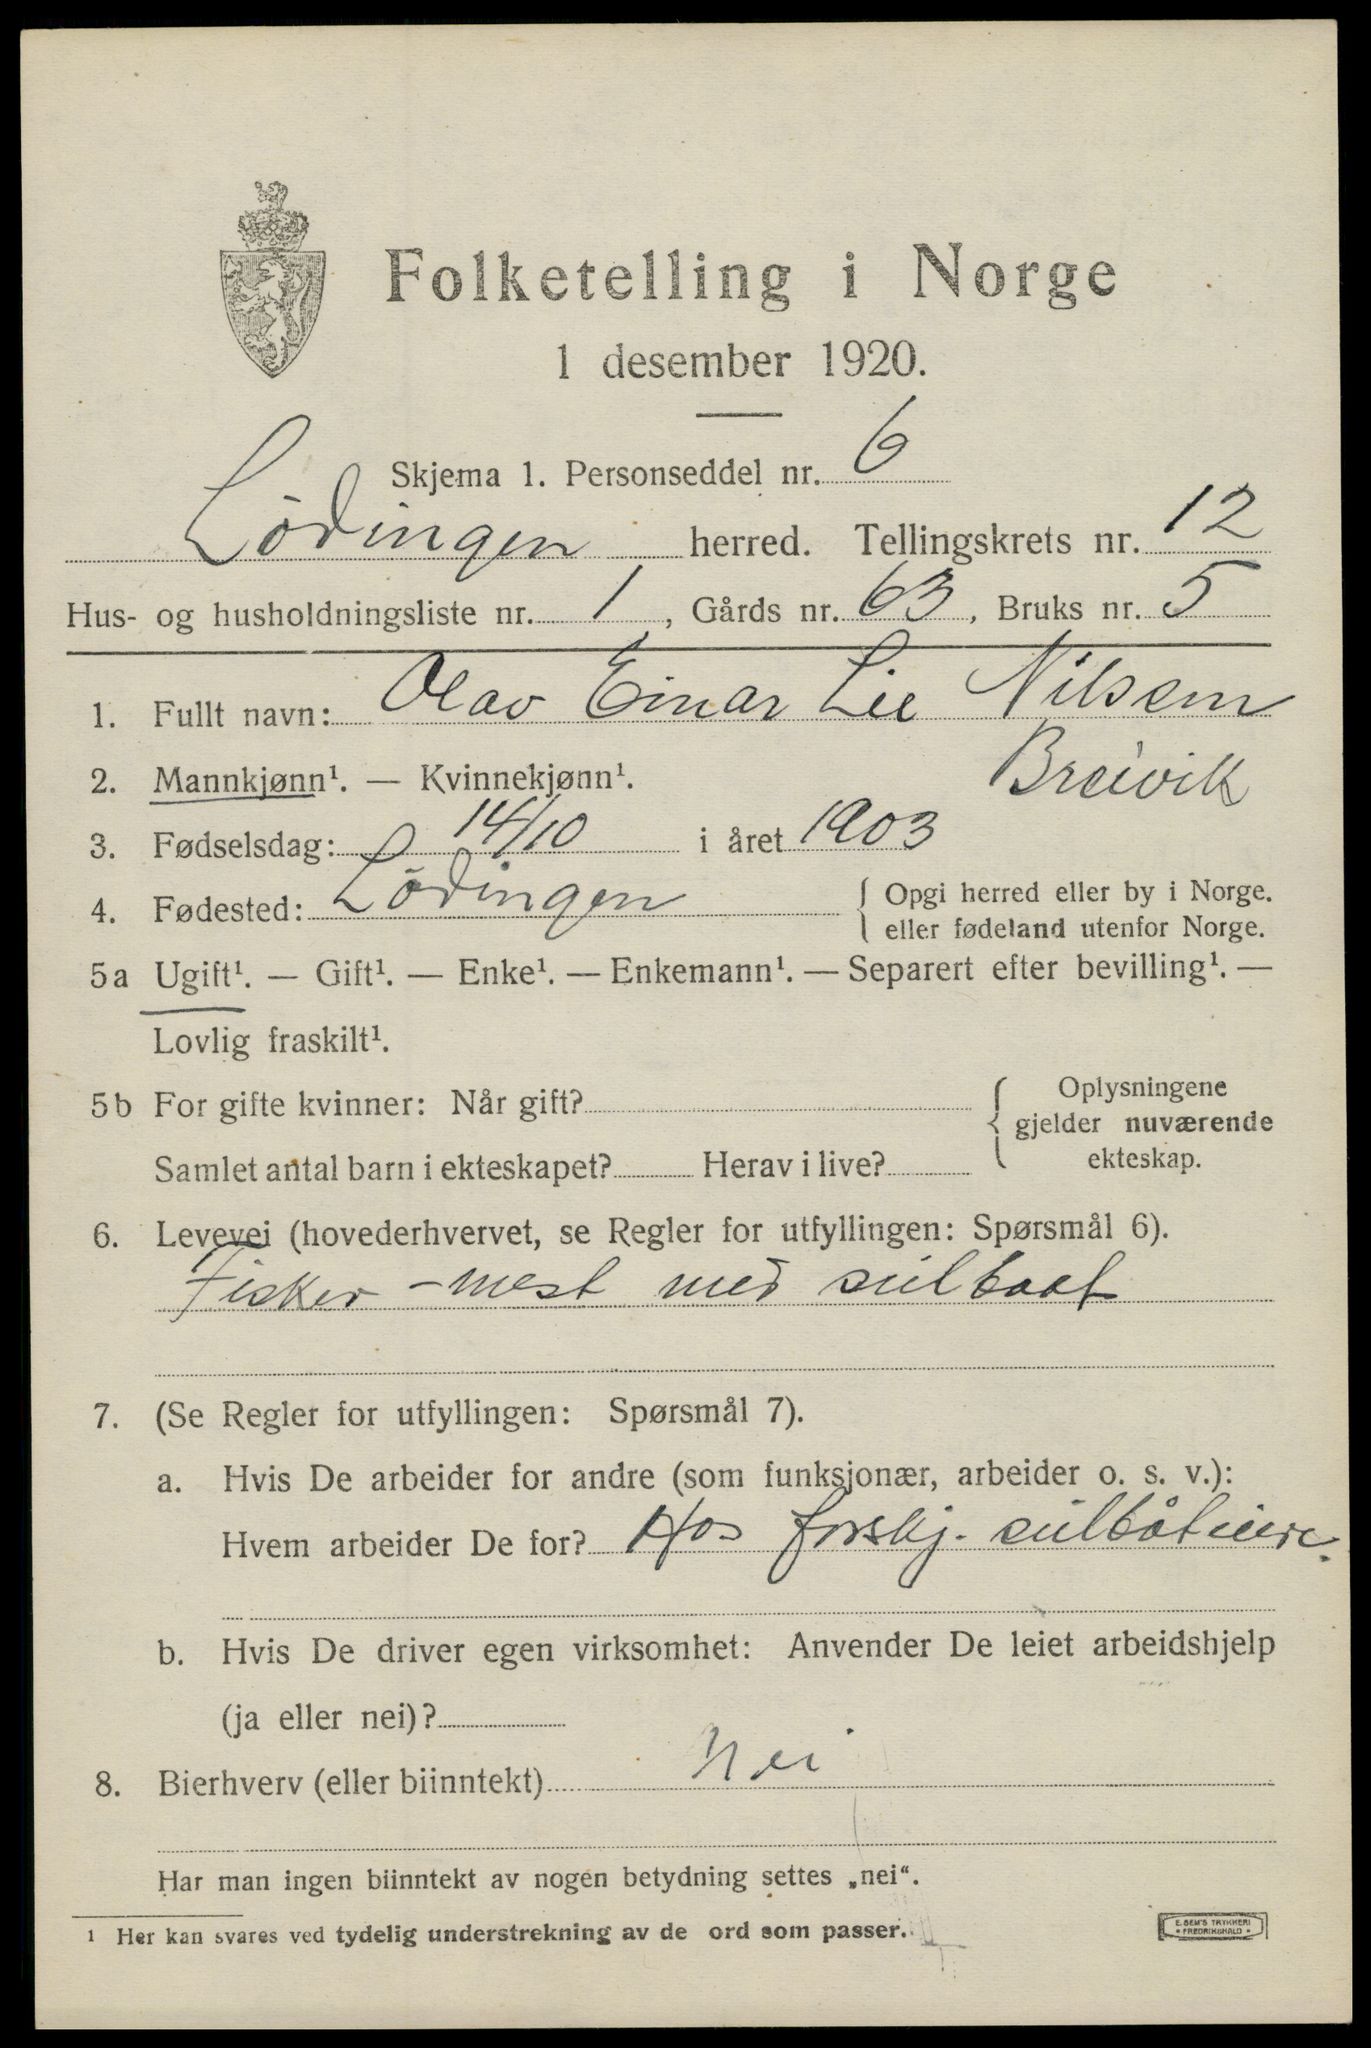 Folketelling i Norge
1 desember 1920.
Skjema 1. Personseddel nr. 6
Lödingen herred. Tellingskrets nr. 12
Hus- og husholdningsliste nr. 1, Gårds nr. 63, Bruks nr. 5
1. Fullt navn: Olav Einar Lie Nilsen
Breivik
2. Mannkjønn¹. — Kvinnekjønn¹.
3. Fødselsdag: 14/10 i året 1903
4. Fødested: Lödingen { Opgi herred eller by i Norge.
eller fødeland utenfor Norge.
5a Ugift¹. — Gift¹. — Enke¹. — Enkemann¹. — Separert efter bevilling¹. —
Lovlig fraskilt¹.
5b For gifte kvinner: Når gift? { Oplysningene
gjelder nuværende
Samlet antal barn i ekteskapet? Herav i live? ekteskap.
6. Levevei (hovederhvervet, se Regler for utfyllingen: Spørsmål 6).
Fisker - mest med seilbaat
7. (Se Regler for utfyllingen: Spørsmål 7).
a. Hvis De arbeider for andre (som funksjonær, arbeider o. s. v.):
Hvem arbeider De for? Hos forskj. seilbåteiere.
b. Hvis De driver egen virksomhet: Anvender De leiet arbeidshjelp
(ja eller nei)?
8. Bierhverv (eller biinntekt) Nei
Har man ingen biinntekt av nogen betydning settes „nei“.
¹ Her kan svares ved tydelig understrekning av de ord som passer.
E. SEM'S TRYKKERI
• FREDRIKSHALD •